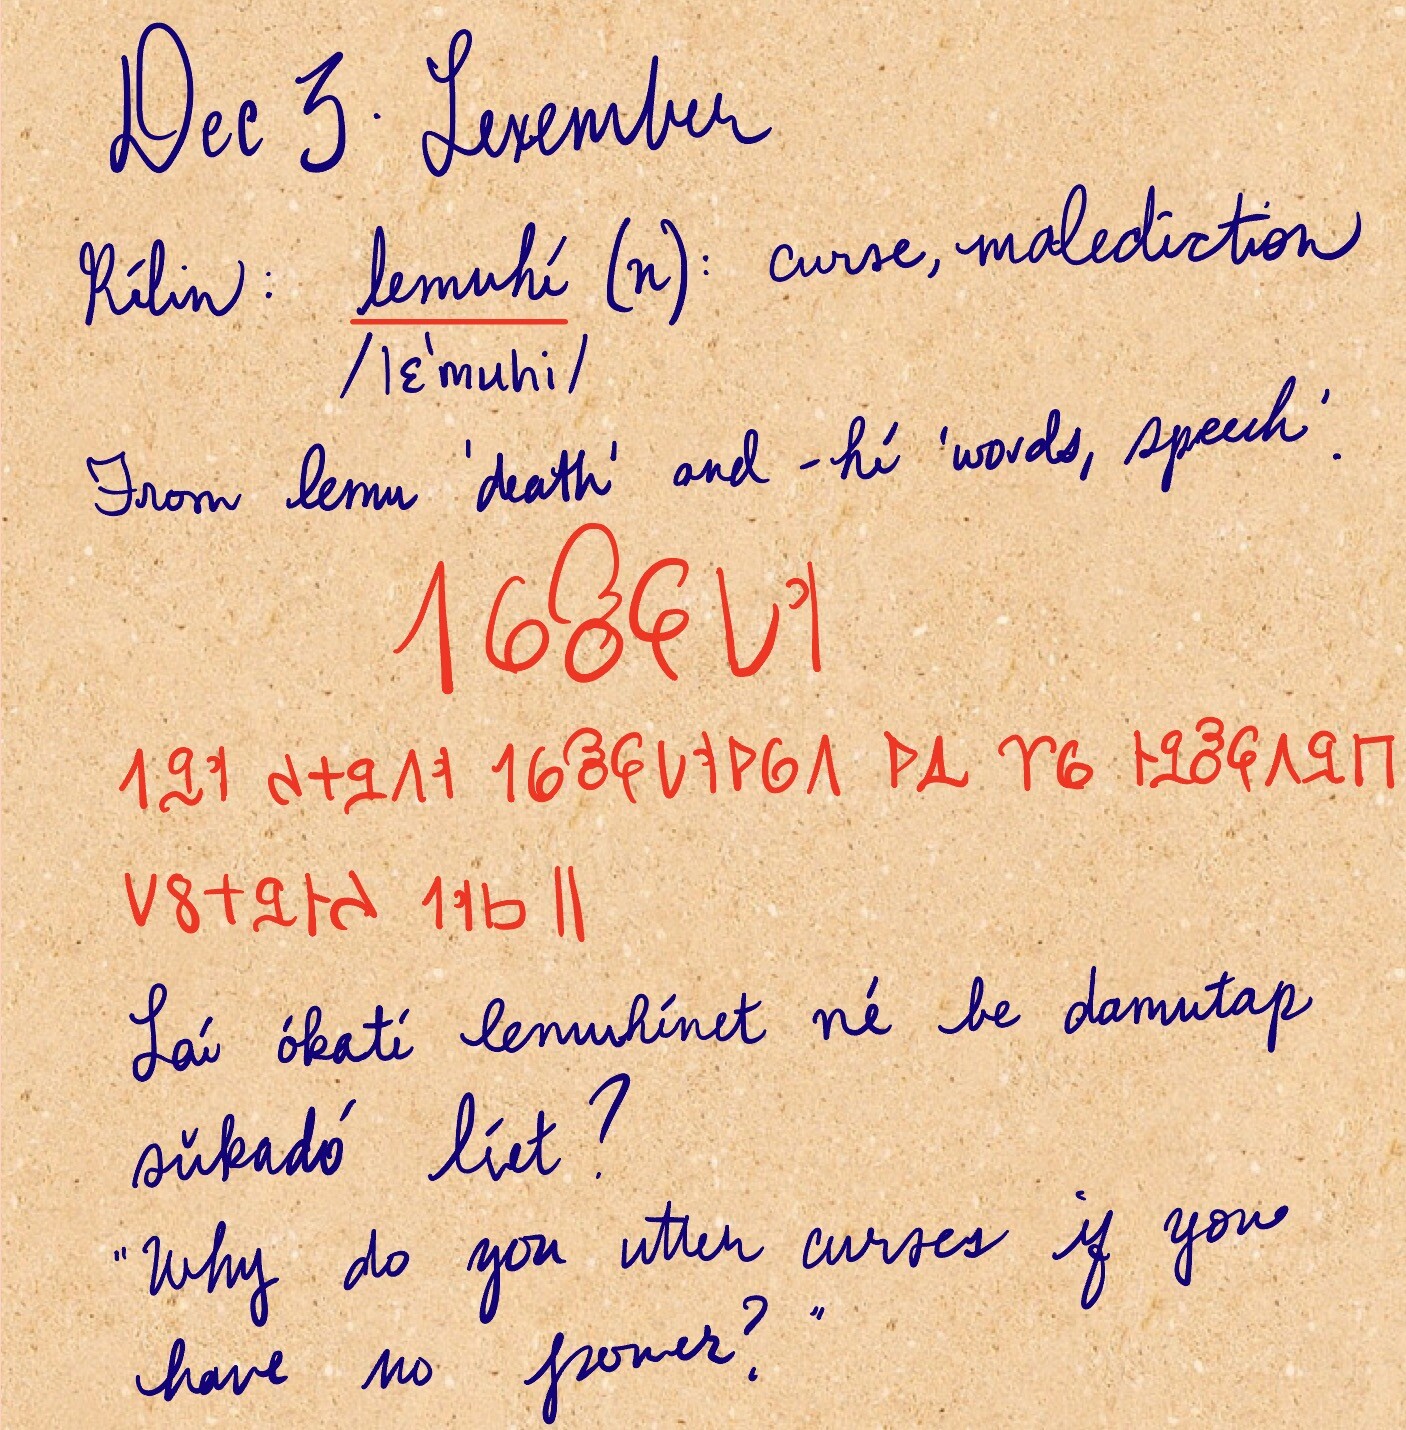 Dec 3. Lexember
Rílin: lemuhí (n): curse, malediction
/lɛˈmuhi/
From lemu 'death' and -hí 'words, speech'.
Laí ókatí lemuhínet né be damutap
sŭkadó líet?
"Why do you utter curses if you
have no power?"